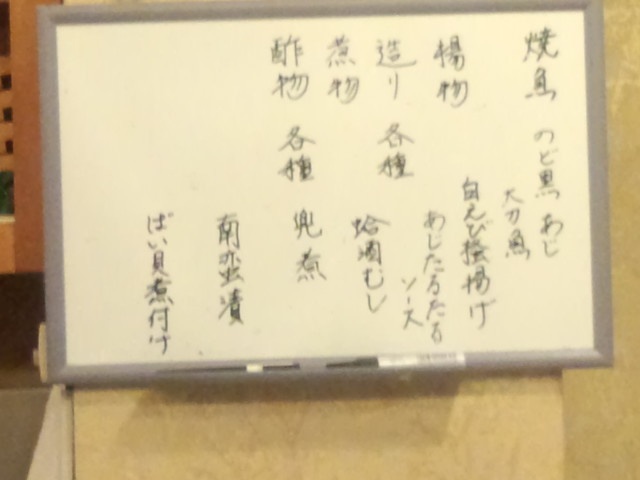 焼魚 のど黒 あじ
太刀魚
揚物 白えび掻揚げ
あじたるたる
ソース
造り 各種
蛤酒むし
煮物 兜煮
酢物 各種
南蛮漬
ばい貝煮付け